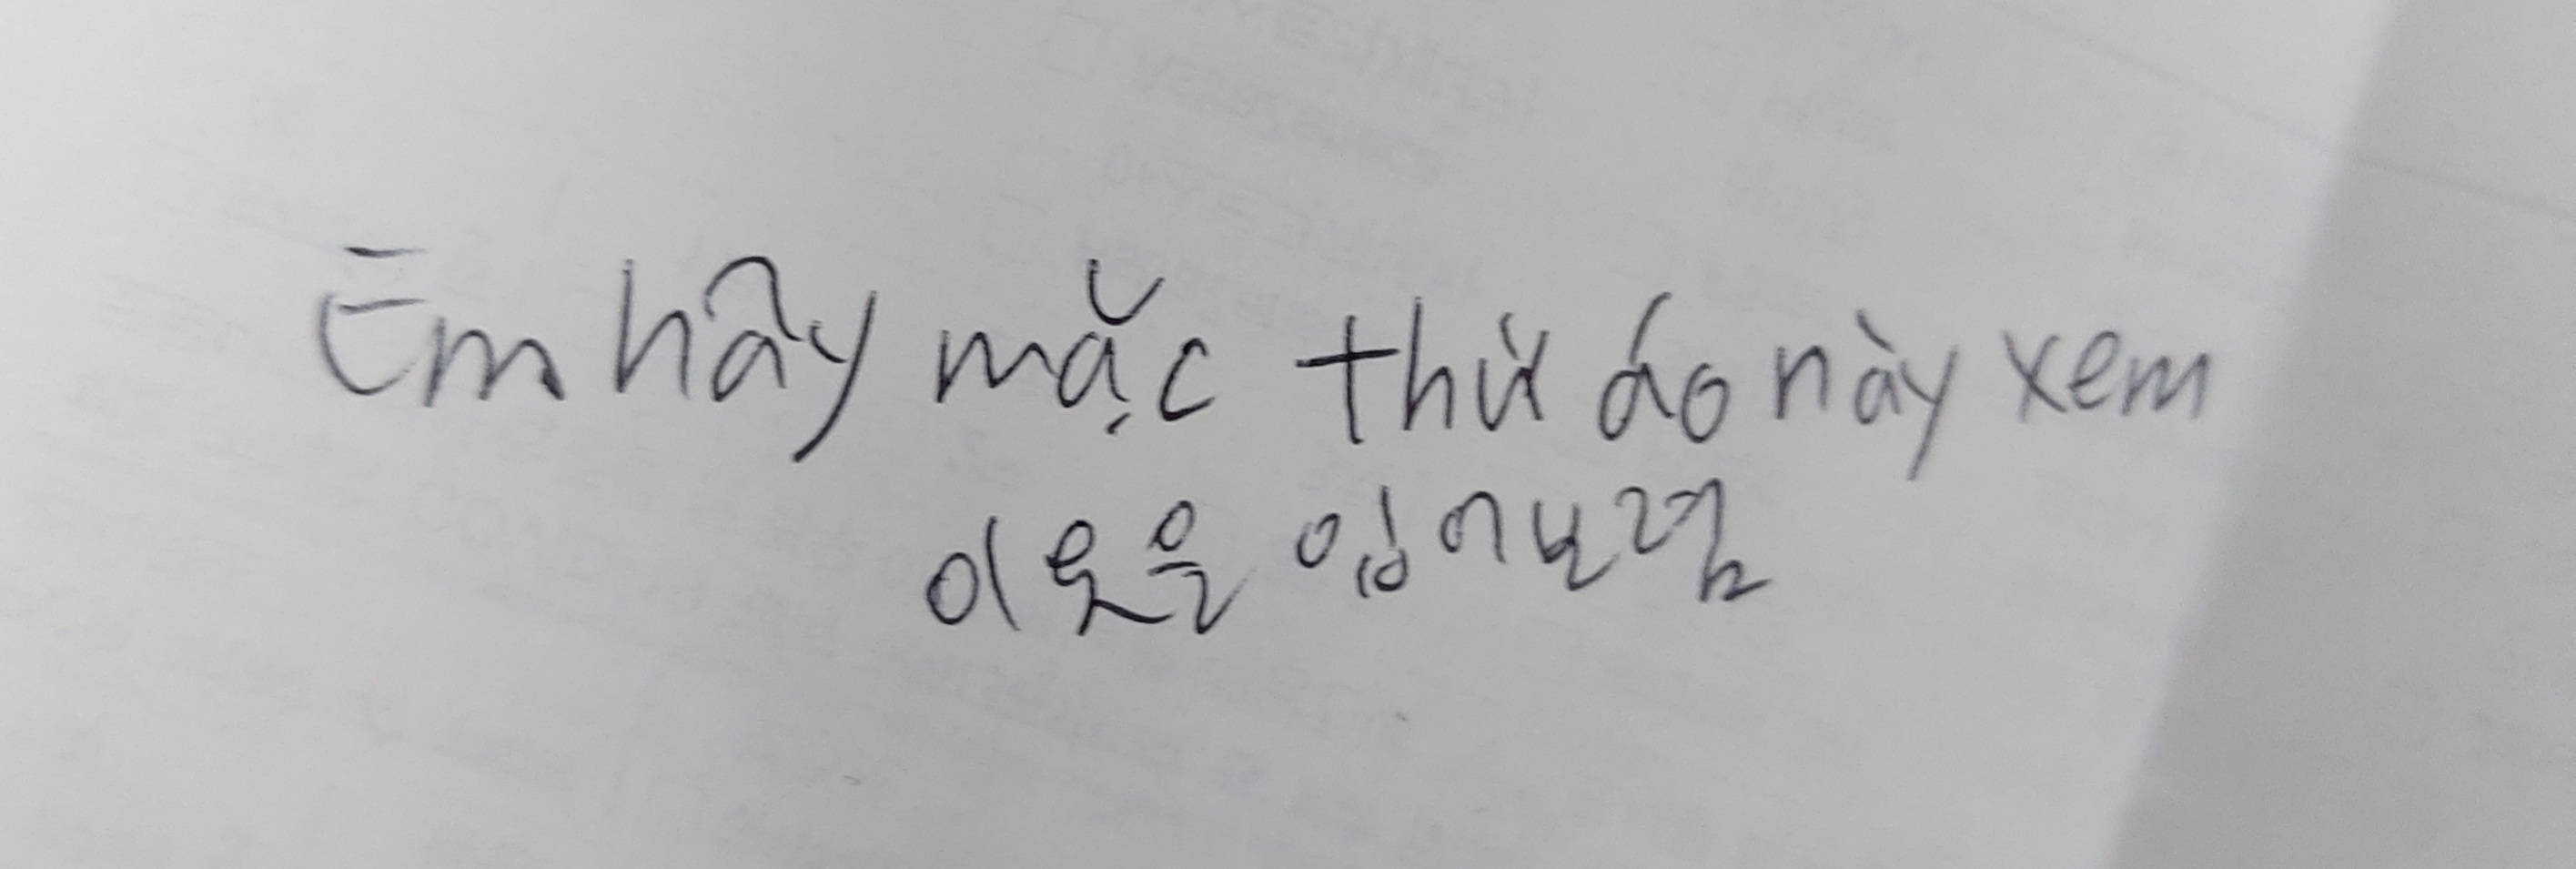 Em hãy mặc thử áo này xem
이 옷을 입어보렴